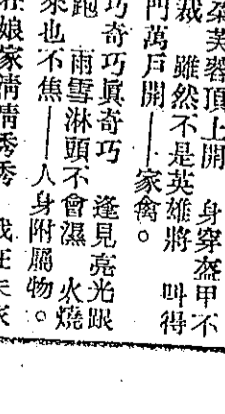 朶芙蓉頂上開　身穿盔甲不
裁　雖然不是英雄將　叫得
門萬戶開——家禽。
巧奇巧眞奇巧　逢見亮光跟
跑　雨雪淋頭不會濕　火燒
來也不焦——人身附屬物。
娘家淸淸秀秀　我在夫家